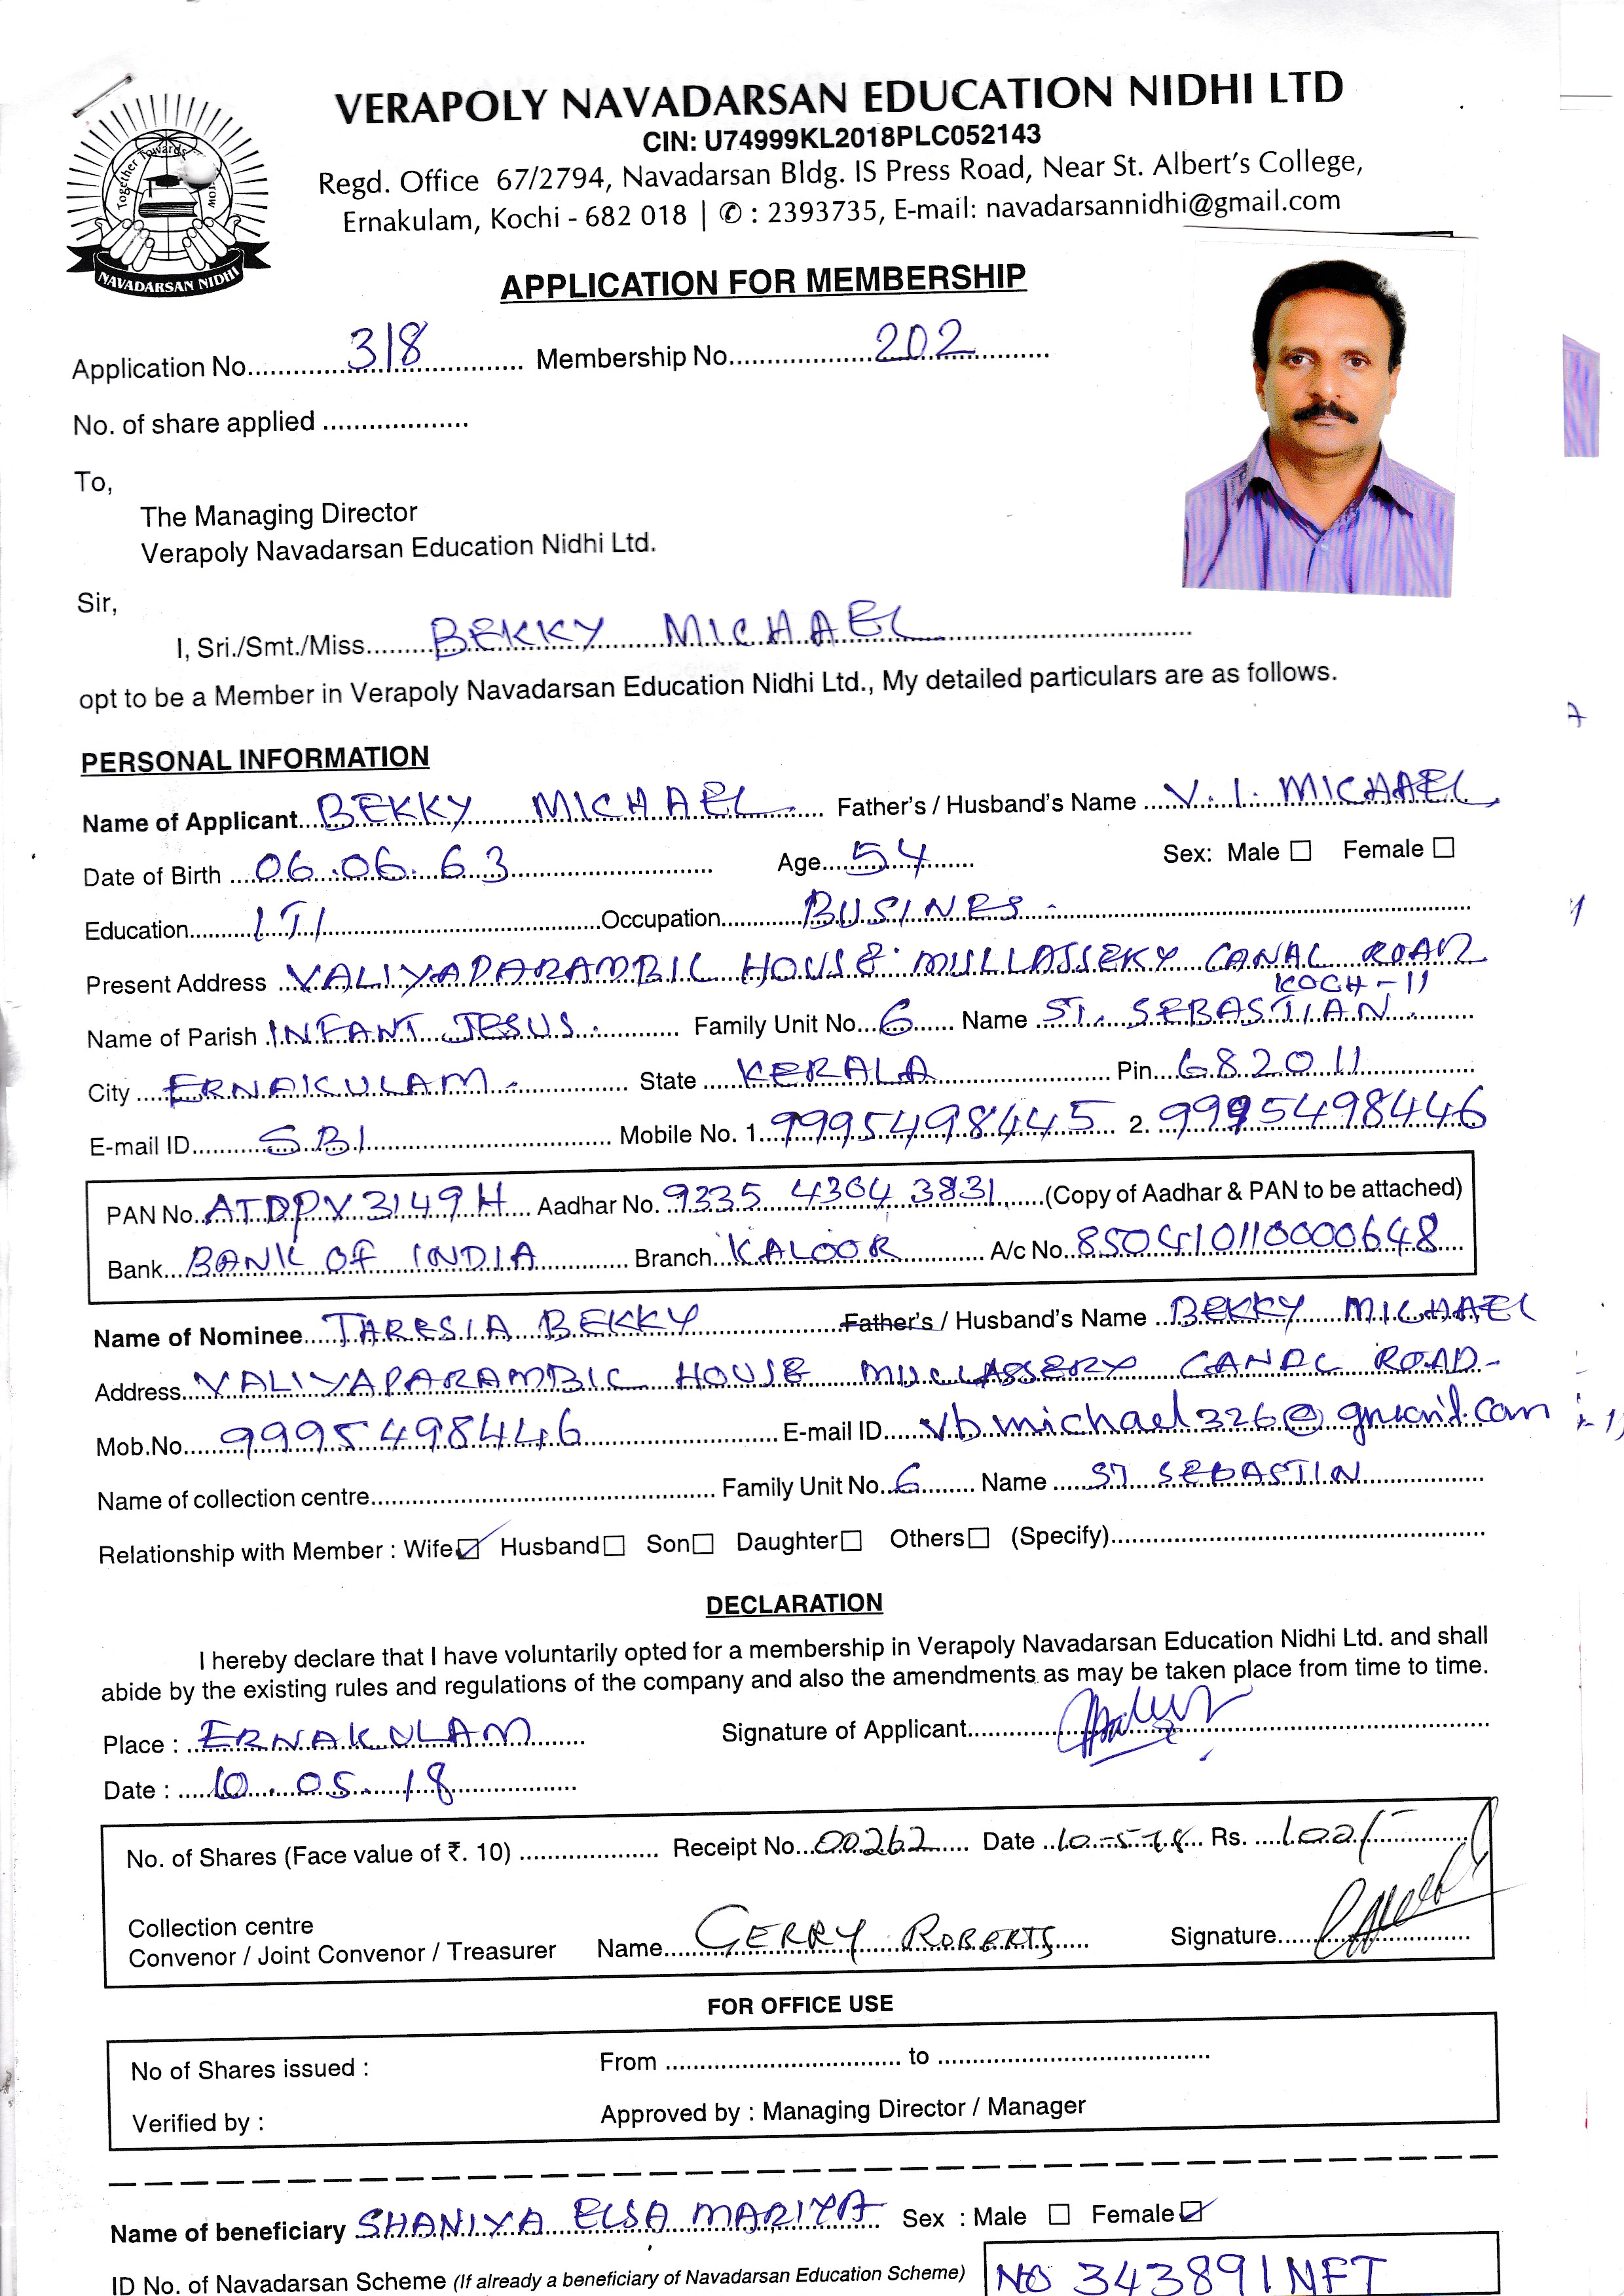 VERAPOLY NAVADARSAN EDUCATION NIDHI LTD
CIN: U74999KL2018PLC052143
Regd. Office 67/2794, Navadarsan Bldg. IS Press Road, Near St. Albert's College,
Ernakulam, Kochi - 682 018 | ✆ : 2393735, E-mail: navadarsannidhi@gmail.com
Together Towards
NAVADARSAN NIDHI
APPLICATION FOR MEMBERSHIP
Application No. 318 Membership No. 202
No. of share applied
To,
The Managing Director
Verapoly Navadarsan Education Nidhi Ltd.
Sir,
I, Sri./Smt./Miss. BEKKY MICHAEL
opt to be a Member in Verapoly Navadarsan Education Nidhi Ltd., My detailed particulars are as follows.
PERSONAL INFORMATION
Name of Applicant BEKKY MICHAEL. Father's / Husband's Name V. I. MICHAEL
Date of Birth 06.06.63 Age 54 Sex: Male ☐ Female ☐
Education ITI Occupation BUSINES.
Present Address VALIYAPARAMBIL HOUSE MULLASSERY CANAL ROAD
KOCH-11
Name of Parish INFANT JESUS. Family Unit No. 6 Name ST. SEBASTIAN.
City ERNAKULAM. State KERALA Pin 682011
E-mail ID SBI Mobile No. 1. 9995498445 2. 9995498446
PAN No. ATDPV3149H Aadhar No. 9335 4304 3831 (Copy of Aadhar & PAN to be attached)
Bank BANK OF INDIA Branch KALOOR A/c No. 850410110000648
Name of Nominee TARESIA BEKKY Father's / Husband's Name BEKKY MICHAEL
Address VALIYAPARAMBIL HOUSE MULLASSERY CANAL ROAD-
Mob.No. 9995498446 E-mail ID vbmichael326@gmail.com
Name of collection centre Family Unit No. 6 Name ST SEBASTIN
Relationship with Member : Wife ☑ Husband ☐ Son ☐ Daughter ☐ Others ☐ (Specify)
DECLARATION
I hereby declare that I have voluntarily opted for a membership in Verapoly Navadarsan Education Nidhi Ltd. and shall
abide by the existing rules and regulations of the company and also the amendments as may be taken place from time to time.
Place : ERNAKULAM Signature of Applicant
Date : 10.05.18
No. of Shares (Face value of ₹. 10) Receipt No. 00262 Date 10-5-18 Rs. 100/-
Collection centre
Convenor / Joint Convenor / Treasurer Name GERRY ROBERTS Signature
FOR OFFICE USE
No of Shares issued : From to
Verified by : Approved by : Managing Director / Manager
Name of beneficiary SHANIYA ELSA MARIYA Sex : Male ☐ Female ☑
ID No. of Navadarsan Scheme (If already a beneficiary of Navadarsan Education Scheme) NO 343891NFT